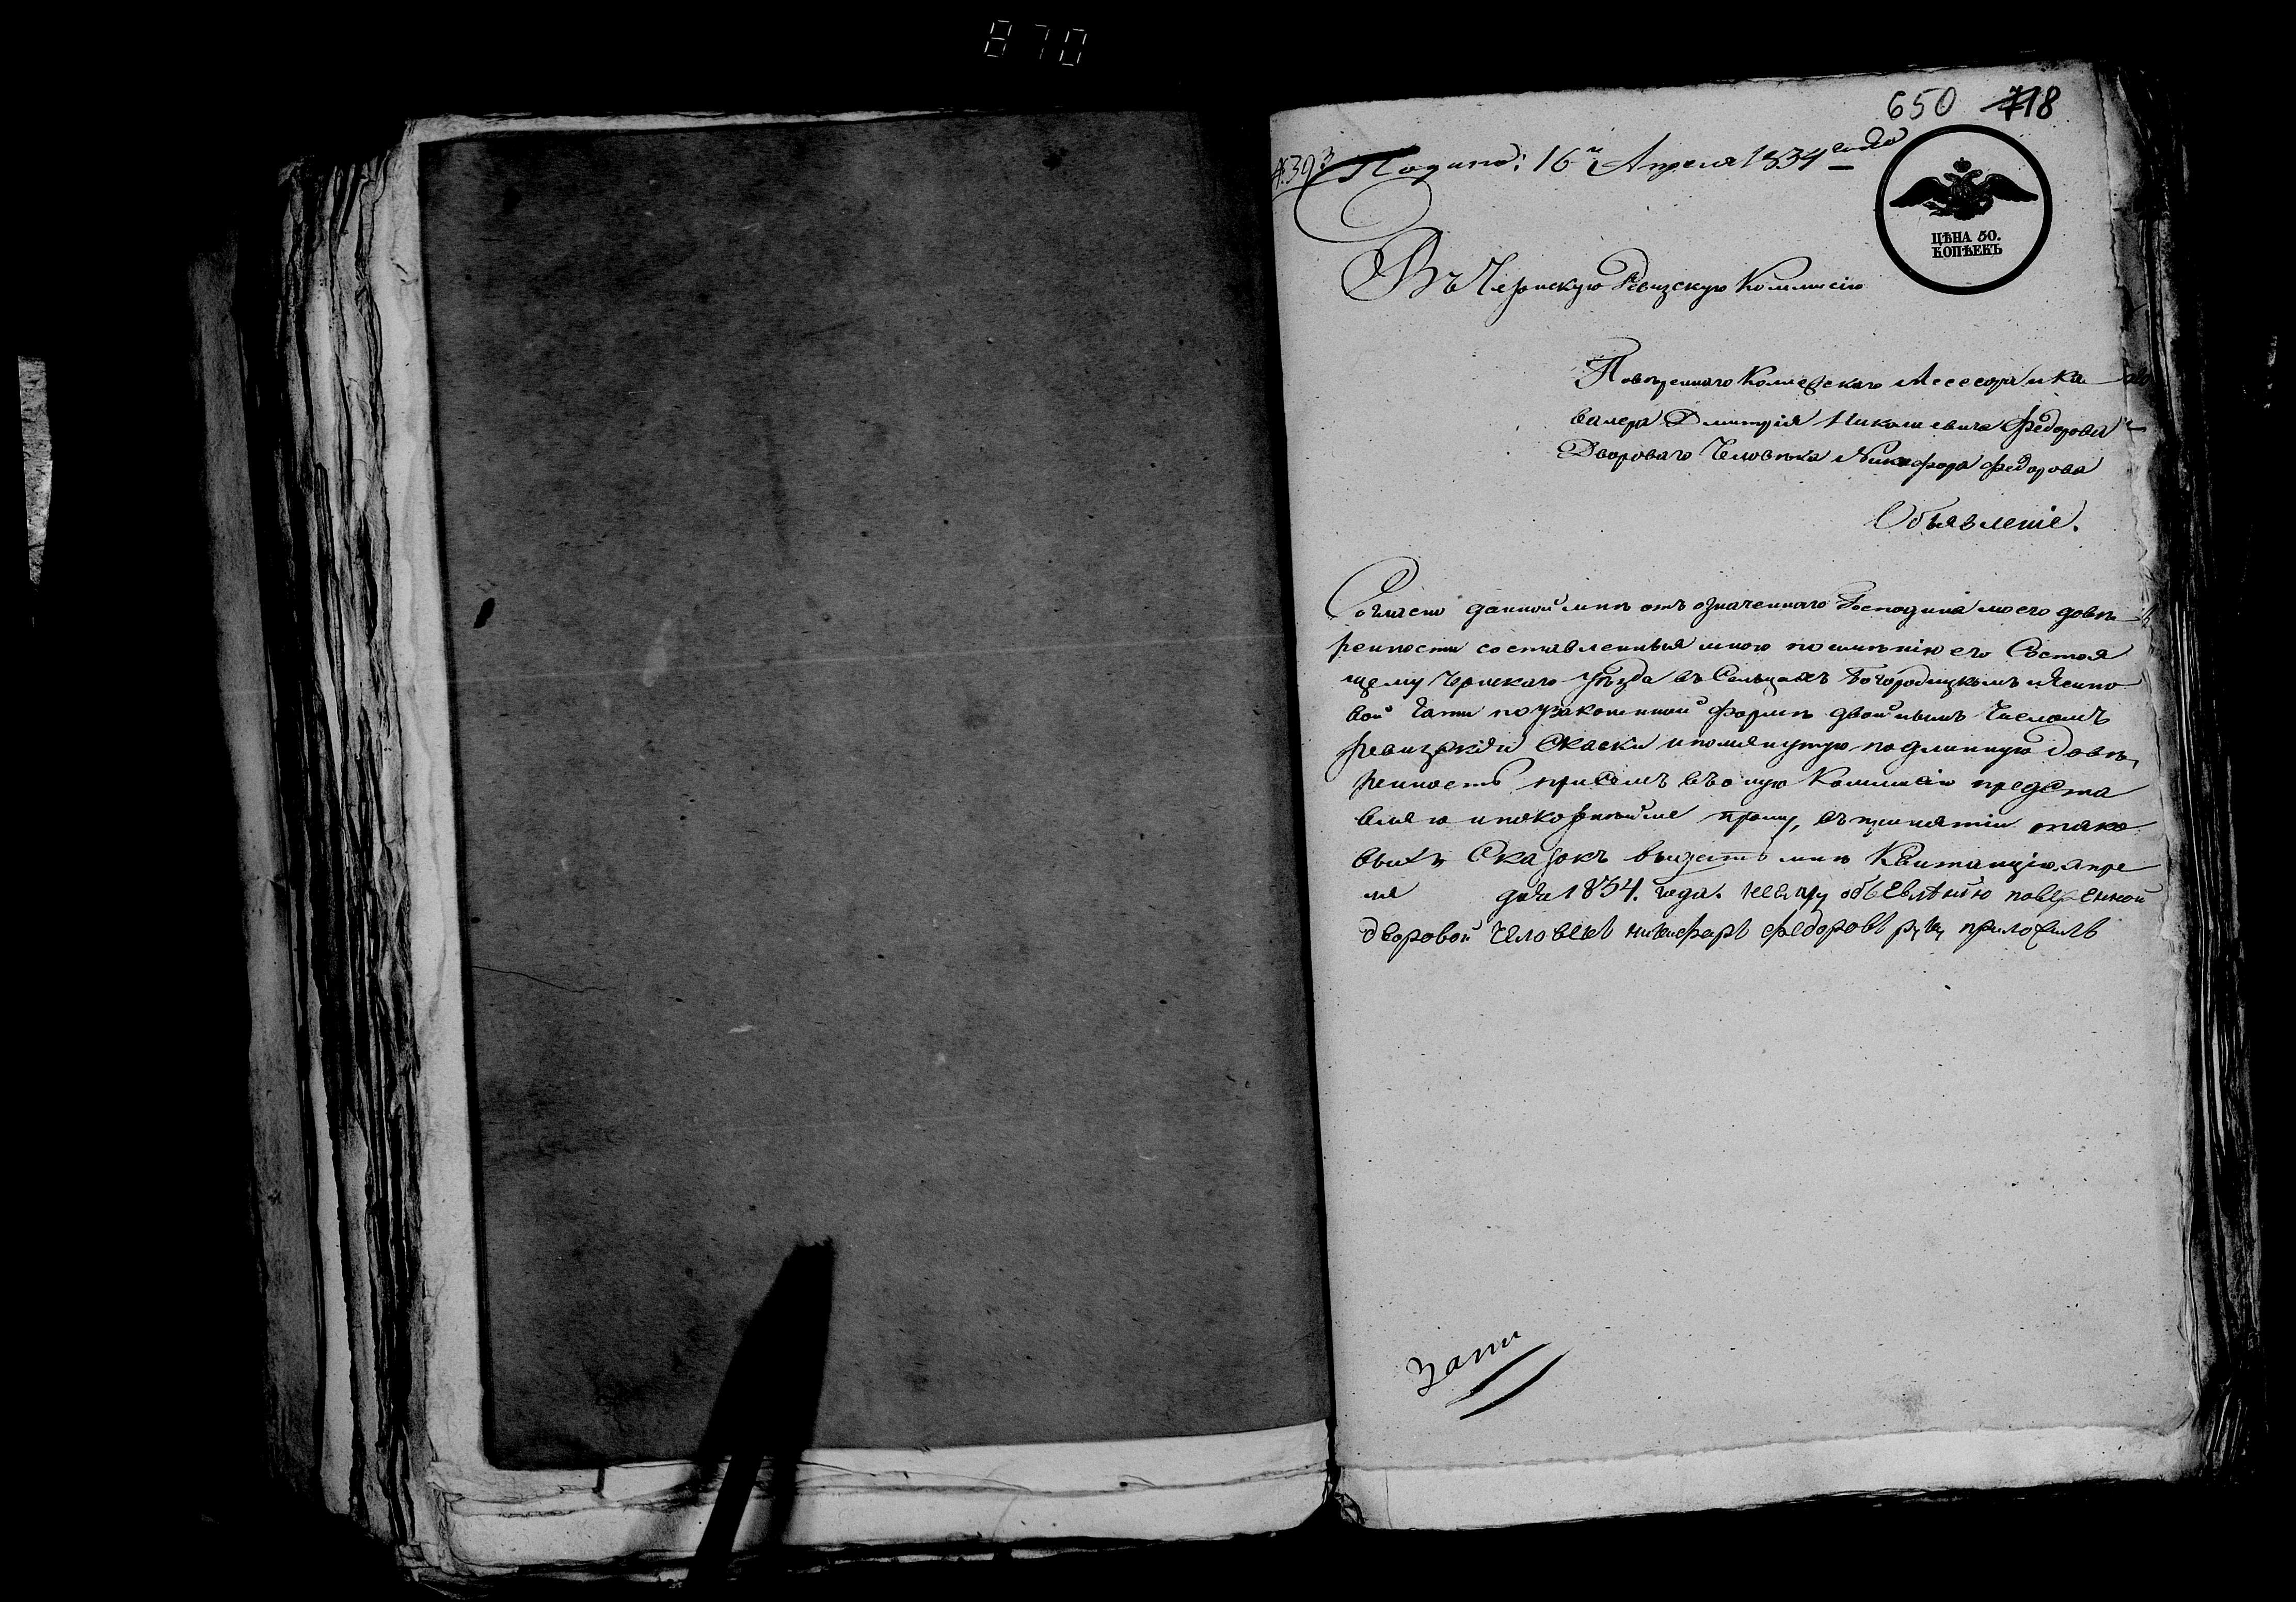 870
650 718
№ 393 Получено: 16го Апреля 1834 года
ЦѢНА 50.
КОПѢЕКЪ
Въ Чернскую Ревизскую Коммисію
Повѣреннаго Колежскаго Ассесора и ка
валера Дмитрія Николаевича Федорова
Двороваго Человѣка Никифора Федорова
Объявленіе.
Согласно данной мнѣ отъ означеннаго Господина моего довѣ
ренности составленныя мною по имѣнію его Состоя
щему Чернскаго уѣзда въ Сельцахъ Богородицкомъ и
вой тати по узаконенной формѣ двойнымъ Числомъ
ревизскія Скаски и помянутую подлинную довѣ
ренность при семъ въ оную Коммисію предста
вляю и покорнѣйше прошу, въ принятіи тако
выхъ Сказокъ выдать мнѣ Квитанцію. апре
ля дня 1834. года. к сему объевлѣнию поверенной
дворовой человекъ никифаръ федоровъ руку приложилъ